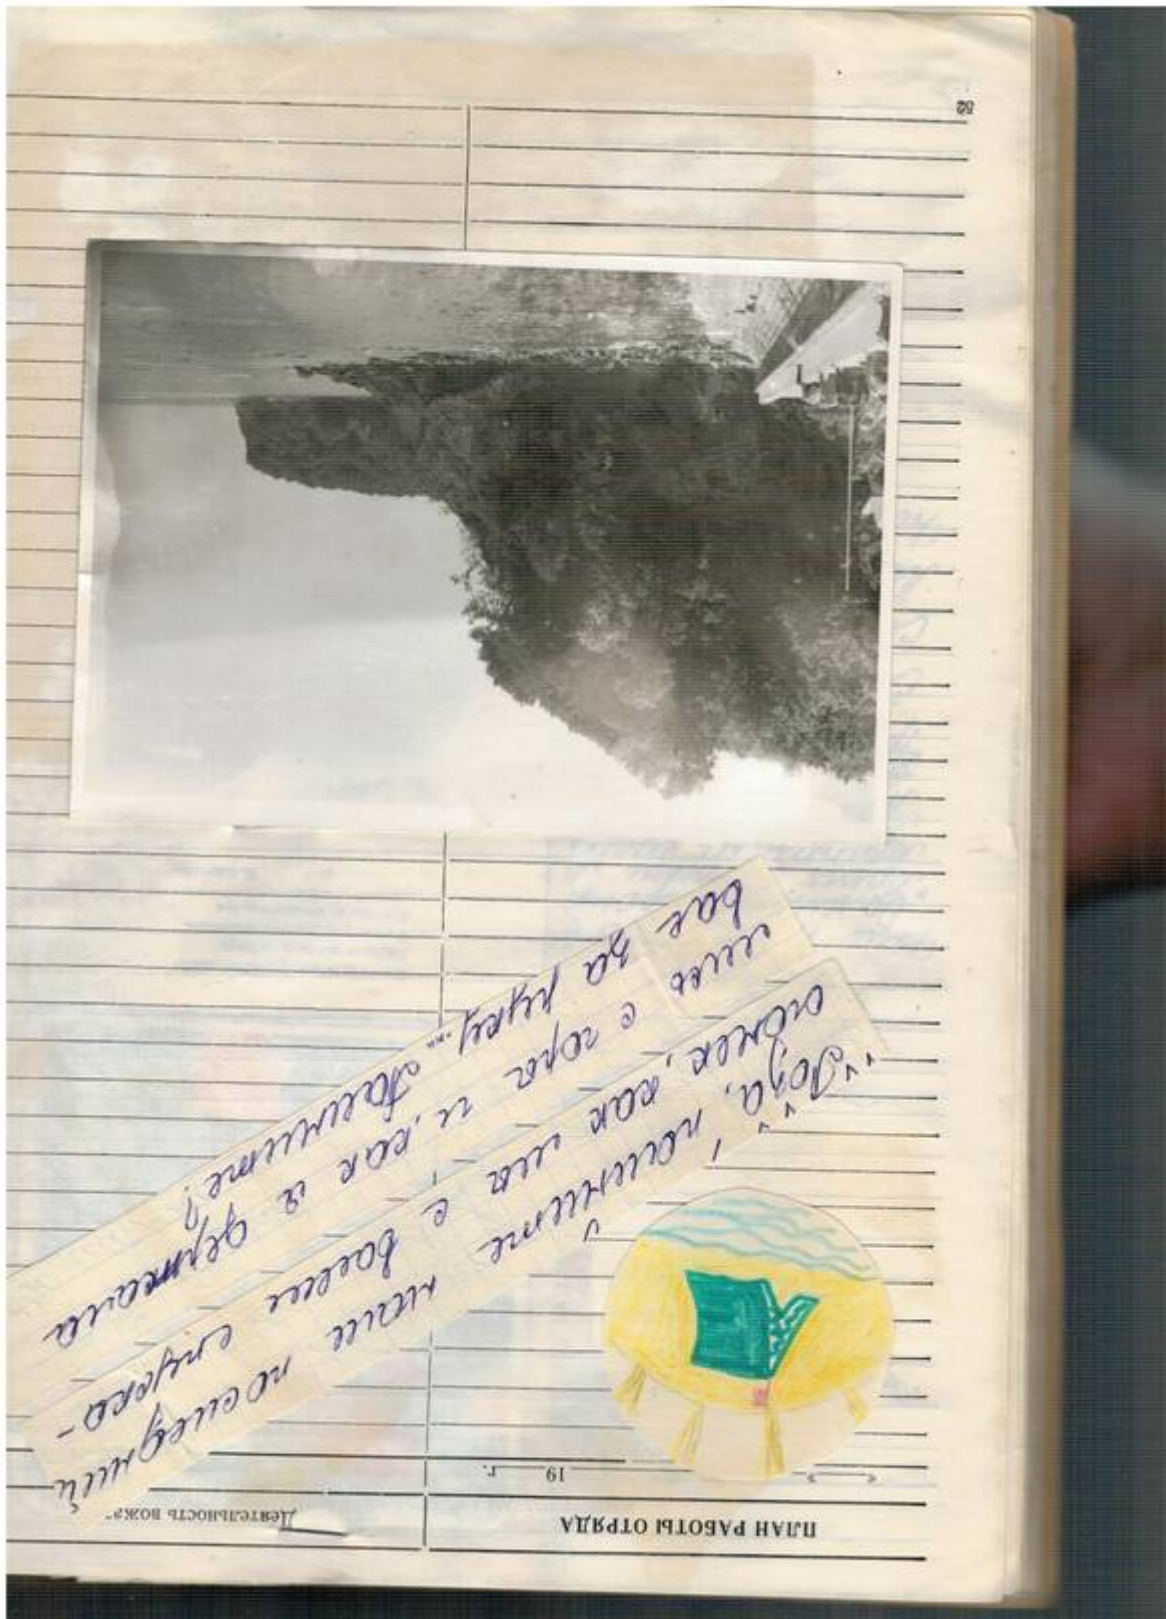 ПЛАН РАБОТЫ ОТРЯДА
Деятельность вожа
19 г.
"Роза, помните наш последний
огонек, как мы с вами спуска-
лись с горы и, как я держала
вас за руку... Помните?
52